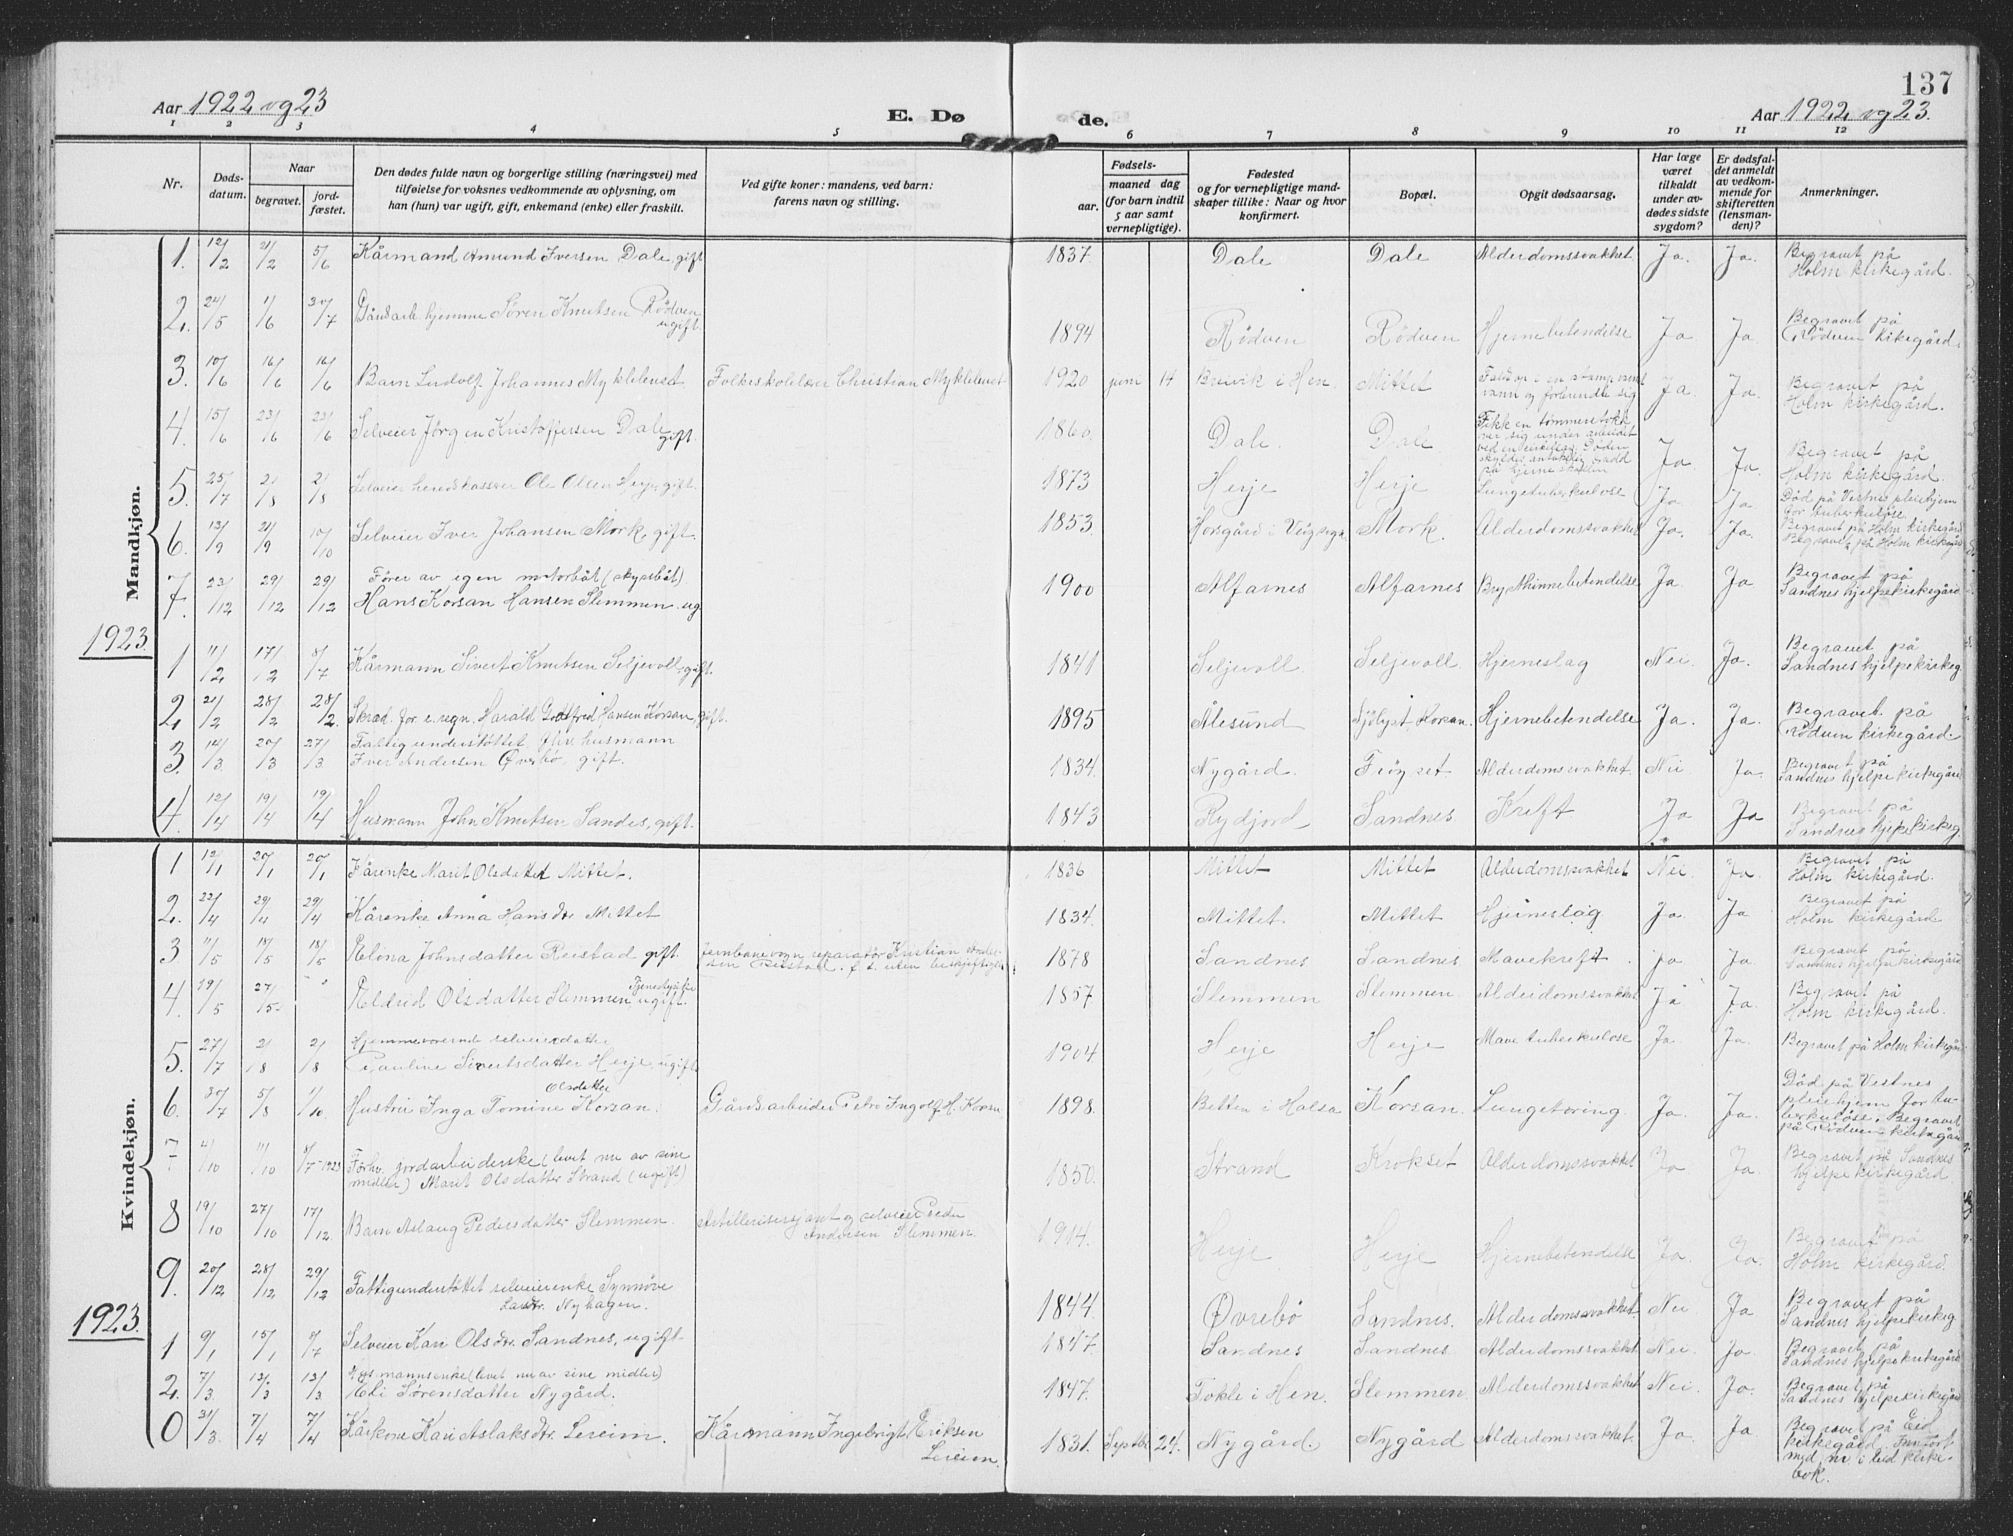 137
Aar 1922 og 23
E. Dø
de.
Aar 1922 og 23.
1 2 3 4 5 6 7 8 9 10 11 12
Nr.
Døds-
datum.
Naar
begravet.
jord-
fæstet.
Den dødes fulde navn og borgerlige stilling (næringsvei) med
tilføielse for voksnes vedkommende av oplysning, om
han (hun) var ugift, gift, enkemand (enke) eller fraskilt.
Ved gifte koner: mandens, ved barn:
farens navn og stilling.
Fødsels-
aar.
maaned dag
(for barn indtil
5 aar samt
vernepligtige).
Fødested
og for vernepligtige mand-
skaper tillike: Naar og hvor
konfirmert.
Bopæl.
Opgit dødsaarsag.
Har læge
været
tilkaldt
under av-
dødes sidste
sygdom?
Er dødsfal-
det anmeldt
av vedkom-
mende for
skifteretten
(lensman-
den)?
Anmerkninger.
Mandkjøn.
1. 12/2 21/2 5/6 Kårmand Amund Iversen Dale, gift 1837. Dale Dale Alderdomssvakhet Ja. Ja. Begravet på
Holm kirkegård.
2. 24/5 1/6 30/7 Gårdsarb. hjemme Søren Knutsen Rødven
ugift. 1894 Rødven Rødven Hjernebetendelse Ja Ja Begravet på
Rødven kirkegård.
3. 10/6 16/6 16/6 Barn Ludolf Johannes Myklebust Folkeskolelærer Christian Myklebust 1920 juni 14 Breivik i Hen Mittet Ja Ja. Begravet på
Holm kirkegård.
4. 15/6 23/6 23/6 Selveier Jørgen Kristoffersen Dale
gift. 1860. Dale. Dale Fikk en tømmerstokk
over sig under arbeidet
Ja Ja. Begravet på
Holm kirkegård.
5. 25/7 2/8 2/8 Selveier Ole Olsen Herje, gift. 1873 Herje Herje Lungetuberkulose Ja Ja Død på Vestnes pleiehjem
for tuberkuløse.
Begravet på Holm kirkegård
6. 13/9 21/9 10/10 Selveier Iver Johansen Mork, gift. 1853 Mork. Alderdomssvakhet Ja. Ja. Begravet på Holm kirkegård
7. 23/12 29/12 29/12 Fører av egen motorbåt (skyssbåt)
Hans Korsan Hansen Slemmen, ug. 1900 Alfarnes Alfarnes Brysthinnebetendelse Ja Ja Begravet på
Sandnes hjelpekirkegård
1923.
1 11/2 17/2 8/7 Kårmann Sivert Knutsen Seljevoll, gift. 1841 Seljevoll Seljevoll Hjerneslag Nei Ja. Begravet på
Sandnes hjelpekirkeg
2. 21/2 28/2 28/2. Skræd. for e. regn. Harald Gottfred Hansen Korsan, gift. 1895 Ålesund Korsan. Hjernebetendelse Ja. Ja. Begravet. på
Rødven kirkegård.
3. 14/3 20/3 27/3 Fattigunderstøttet, husmann
Iver Andersen Øverbø, gift. 1834. Nygård. Frøyset Alderdomssvakhet. Nei Ja. Begravet på
Sandnes hjelpekirkegård
4. 12/4 19/4 19/4 Husmann John Knutsen Sandes, gift. 1843 Rydjord Sandnes Kreft Ja Ja Begravet på
Sandnes hjelpekirkeg.
Kvindekjøn.
1 12/1 20/1 20/1 Kårenke Marit Olsdatter Mittet. 1836 Mittet Mittet Alderdomssvakhet Nei. Ja. Begravet på
Holm kirkegård.
2. 22/4 29/4 29/4 Kårenke Anna Hansdtr Mittet 1834. Mittet. Mittet Hjerneslag Ja Ja Begravet på
Holm kirkegård
3 11/5 18/5 18/5 Elona Johnsdatter Reistad gift Jernbanevogn reparatør Kristian Ander-
sen Reistad. f. t. uten beskjeftigelse 1878 Sandnes Sandnes Mavekreft ja Ja. Begravet på
Sandnes hjelpekirkegård
4. 19/5 27/5 Eldrid Olsdatter Slemmen, ugift. 1857 Slemmen Slemmen Alderdomssvakhet Ja Ja. Begravet på
Holm kirkegård.
5. 27/7 2/8 2/8 Hjemmeværend selveierdatter
Pauline Sivertsdatter Herje, ugift 1904 Herje Herje Mave tuberkulose Ja. Ja. Begravet på Holm kirkegård
6. 30/7 5/8 1/10 Olsdatter
Hustru Inga Tomine Korsan. Gårdsarbeider Petro Ingolf H. Korsan 1898. Betten i Halsa Korsan. Lungetæring. Ja. Ja. Død på Vestnes
pleiehjem for tu-
berkuløse. Begravet
på Rødven kirkegård
7 4/10 11/10 8/7-1923 Forhv. jordarbeiderske (levet nu av sine
midler) Marit Olsdatter Strand (ugift) 1850. Strand Krokset Alderdomssvakhet Ja Ja. Begravet på Sandnes
hjelpekirkegård
8 19/10 27/10 17/12. Barn Aslaug Pedersdatter Slemmen. Artillerisersjant og selveier Peder
Andersen Slemmen. 1914. Herje Herje Hjernebetendelse Ja. Ja. Begravet på
Holm kirkegård
9. 20/12 28/12 29/12 Fattigunderstøttet selveierenke Synnøve
Nyhagen. 1844. Øvrebø Sandnes. Alderdomssvakhet. Nei Ja Begravet på
Sandnes hjelpekirkeg
1923.
1 9/1 15/1 8/7 Selveier Kari Olsdtr. Sandnes, ugift 1847. Sandnes Sandnes. Alderdomssvakhet Nei. Ja. Begravet på
Sandnes hjelpekirkegård
2. 7/3 13/3 13/3 Husmannsenke (levet nu av sine midler)
Eli Sørensdatter Nygård. 1847. Tokle i Hen. Slemmen. Alderdomssvakhet Nei Ja. Begravet på
Sandnes hjelpekirkegård
0 31/3. 7/4 7/4 Kårkone Kari Aslaksdtr. Lereim. Kårmann Ingebrigt Eriksen
Lereim. 1831. Septbr. 24. Nygård. Nygård Alderdomssvakhet. Ja. Ja. Begravet på Eid
kirkegård. Innført
med nr. i Eid kirke-
bok.